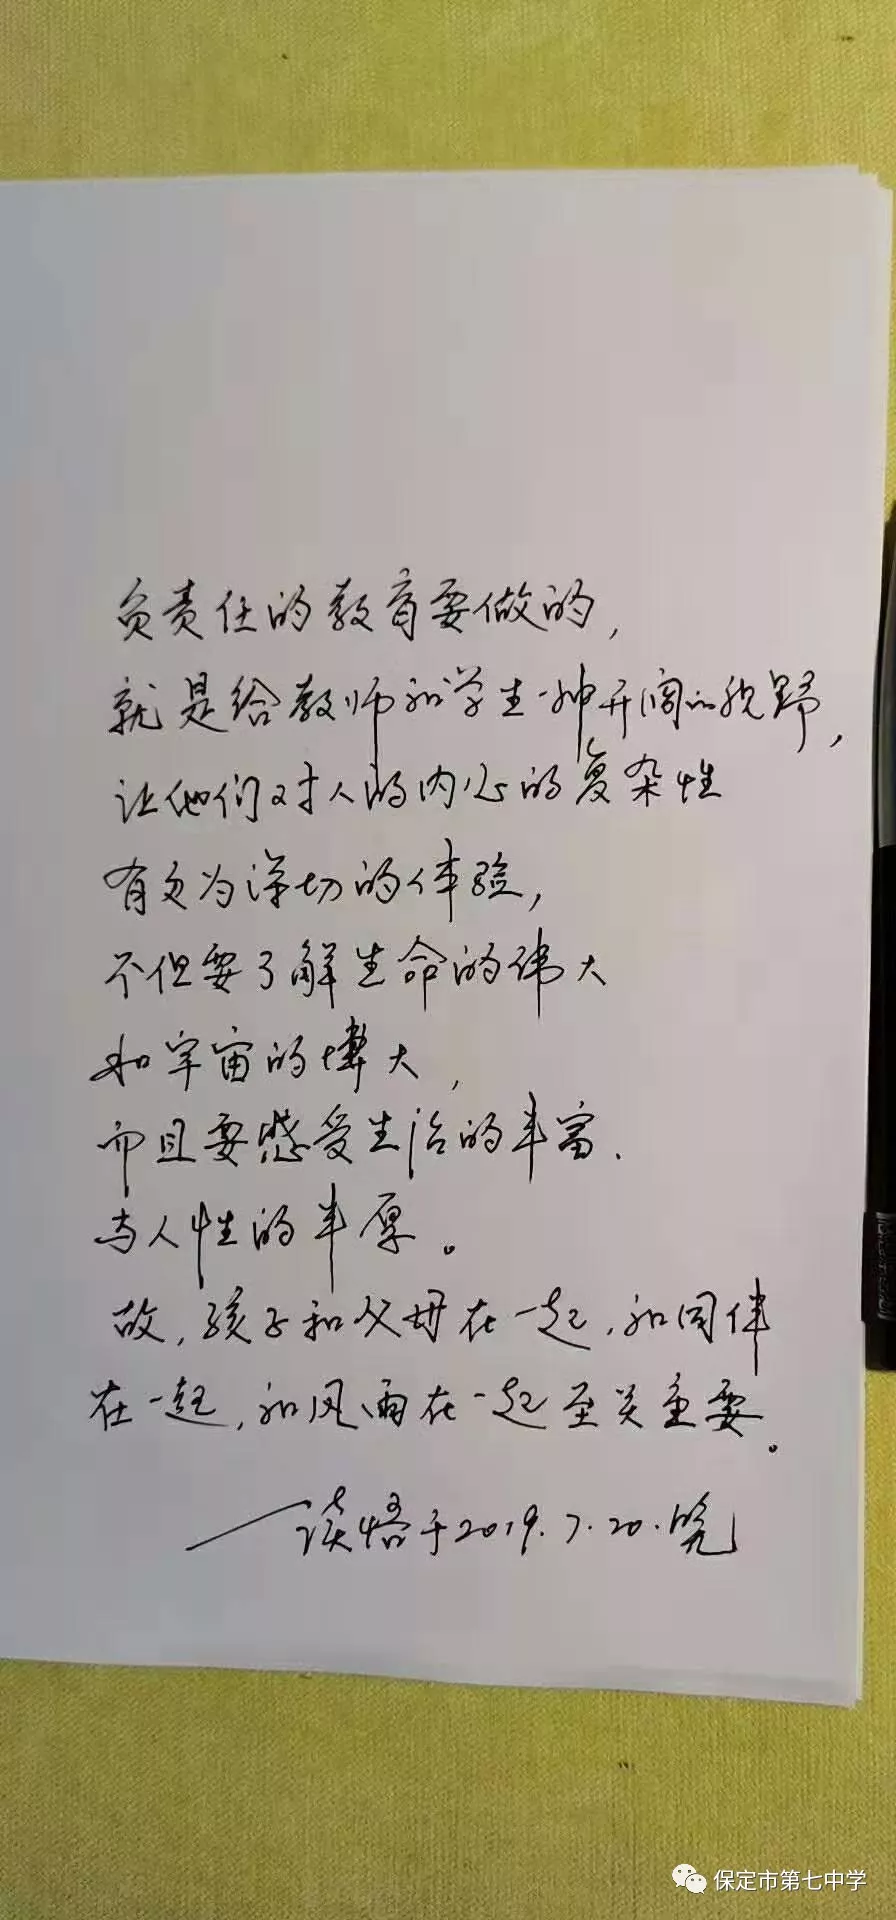 负责任的教育要做的,
就是给教师和学生一种开阔的视野,
让他们对人的内心的复杂性
有更为深切的体验,
不但要了解生命的伟大
和宇宙的博大,
而且要感受生活的丰富.
与人性的丰厚。
故,孩子和父母在一起,和同伴
在一起,和风雨在一起至关重要。
——谈悟于2019.7.20.晓
保定市第七中学